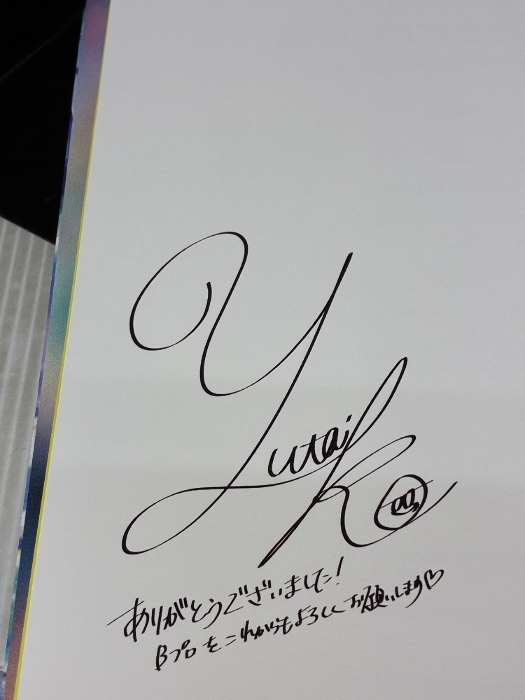 Yutai K
ありがとうございました!
Bプロをこれからもよろしくお願いします♡